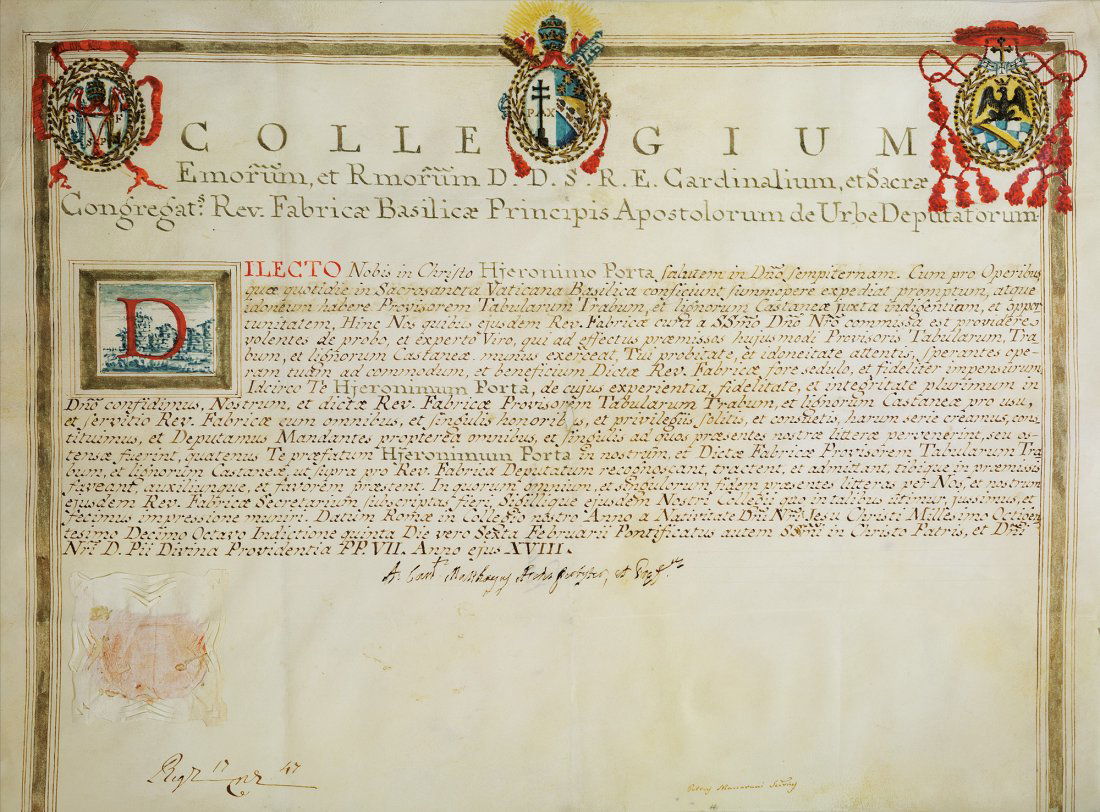 R F
S P
PAX
COLLEGIUM
Emor̃um, et Rmor̃um D. D. S. R. E. Cardinalium, et Sacræ
Congregat.s Rev. Fabricæ Basilicæ Principis Apostolorum de Urbe Deputatorum
DILECTO Nobis in Christo Hjeronimo Porta salutem in Dño sempiternam. Cum pro Operibus
quæ quotidie in Sacrosancta Vaticana Basilica conficiunt summopere expediat promptum, atque
idoneum habere Provisorem Tabularum Trabum, et lignorum Castaneæ juxta indigentiam, et oppor
tunitatem, Hinc Nos quibus ejusdem Rev. Fabricæ cura a SSmo Dño Nr̃o commissa est providere
volentes de probo, et experto Viro, qui ad effectus præmissos hujusmodi Provisoris Tabularum, Tra
bum, et lignorum Castaneæ munus exerceat, Tui probitate, et idoneitate attentis, sperantes ope
ram tuam ad commodum, et beneficium Dictæ Rev. Fabricæ fore sedulo, et fideliter impensurum,
Idcirco Te Hjeronimum Porta, de cujus experientia, fidelitate, et integritate plurimum in
Dño confidimus, Nostrum, et dictæ Rev. Fabricæ Provisorem Tabularum Trabum, et lignorum Castaneæ pro usu,
et servitio Rev. Fabricæ cum omnibus, et singulis honoribus, et privilegiis solitis, et consuetis, harum serie creamus, con
stituimus, et Deputamus Mandantes propterea omnibus, et singulis ad quos præsentes nostræ litteræ pervenerint, seu os
tensæ fuerint, quatenus Te præfatum Hjeronimum Porta in nostrum, et Dictæ Fabricæ Provisorem Tabularum Tra
bum, et lignorum Castaneæ, ut supra pro Rev. Fabrica Deputatum recognoscant, tractent, et admittant, tibique in præmissis
faveant, auxiliumque, et favorem præstent. In quorum omnium, et singulorum fidem præsentes litteras per Nos, et nostrum
ejusdem Rev. Fabricæ Secretarium subscriptas fieri, Sigillique ejusdem Nostri Collegii quo in talibus utimur, jussimus, et
fecimus impressione muniri. Datum Romæ in Collegio nostro Anno a Nativitate Dñi Nr̃i Jesu Christi Millesimo Octingen
tesimo Decimo Octavo Indictione quinta Die vero Sexta Februarii Pontificatus autem SSm̃i in Christo Patris, et Dñi
Nr̃i D. Pii Divina Providentia PP. VII. Anno ejus XVIII.
A. Card. Mattheyus Archipresbyter, et Præf.us
17 47